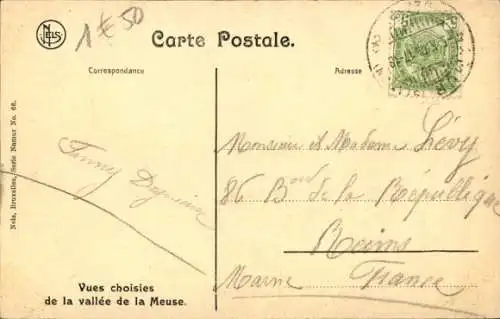 1€50
NELS
Carte Postale.
Correspondance
Adresse
Nels, Bruxelles, Serie Namur No. 66.
Monsieur et Madame Lévy
86 Bard de la République
Reims
Marne France
Fanny
Vues choisies
de la vallée de la Meuse.